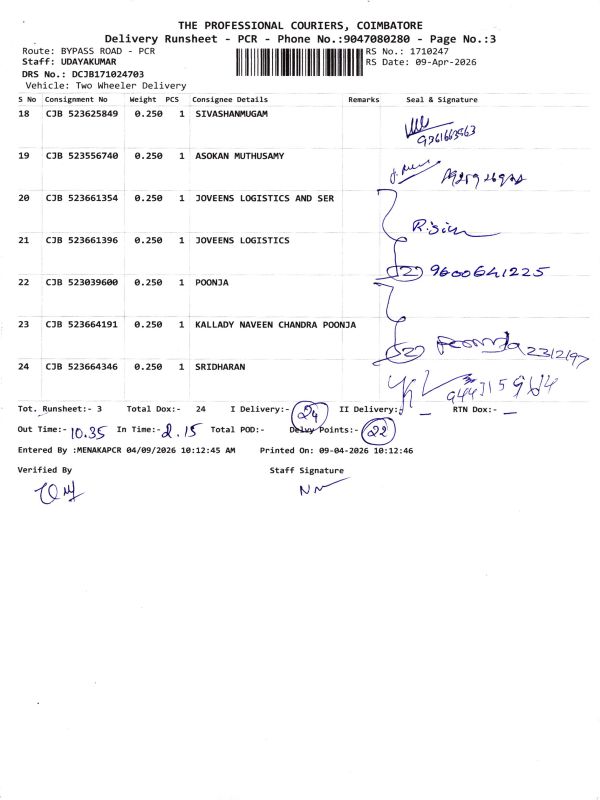 THE PROFESSIONAL COURIERS, COIMBATORE
Delivery Runsheet - PCR - Phone No.:9047080280 - Page No.:3
Route: BYPASS ROAD - PCR RS No.: 1710247
Staff: UDAYAKUMAR RS Date: 09-Apr-2026
DRS No.: DCJB171024703
Vehicle: Two Wheeler Delivery
S No Consignment No Weight PCS Consignee Details Remarks Seal & Signature
18 CJB 523625849 0.250 1 SIVASHANMUGAM
19 CJB 523556740 0.250 1 ASOKAN MUTHUSAMY
20 CJB 523661354 0.250 1 JOVEENS LOGISTICS AND SER
21 CJB 523661396 0.250 1 JOVEENS LOGISTICS
(2) 9600641225
22 CJB 523039600 0.250 1 POONJA
23 CJB 523664191 0.250 1 KALLADY NAVEEN CHANDRA POONJA
(2) Poonja
24 CJB 523664346 0.250 1 SRIDHARAN
Tot. Runsheet:- 3 Total Dox:- 24 I Delivery:- 24 II Delivery:- — RTN Dox:- —
Out Time:- 10.35 In Time:- 2.15 Total POD:- Delvy Points:- 22
Entered By :MENAKAPCR 04/09/2026 10:12:45 AM Printed On: 09-04-2026 10:12:46
Verified By Staff Signature